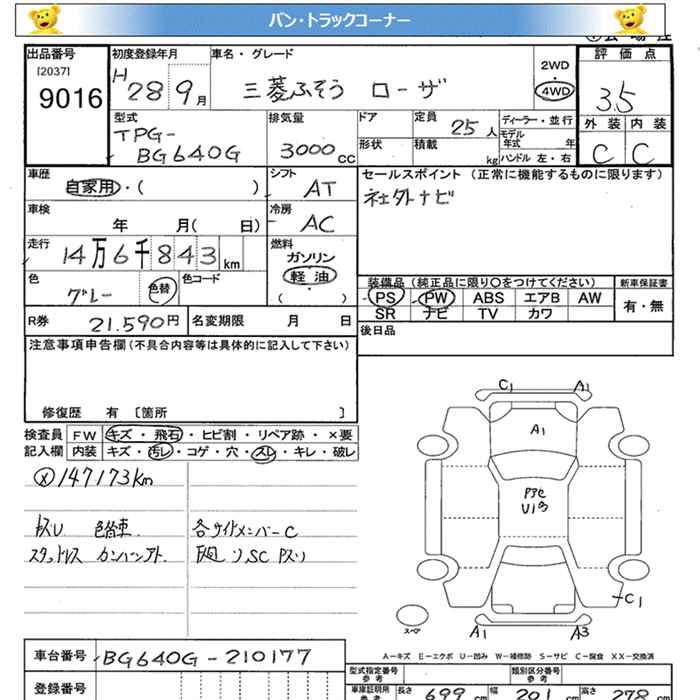 バン・トラックコーナー
出品番号 初度登録年月 車名・グレード 2WD 4WD 評価点
[2037]
9016 H 28 9月 三菱ふそう ローザ 3.5
型式 排気量 ドア 定員 25人 ディーラー・並行 外装 内装
TPG-BG640G 3000cc 形状 積載 kg モデル年式 年 C C
ハンドル 左・右
車歴 自家用・( ) シフト AT セールスポイント(正常に機能するものに限ります)
車検 年 月( 日) 冷房 AC 社外ナビ
走行 14万6千843km 燃料 ガソリン 軽油 ( )
色 グレー 色替 色コード 装備品(純正品に限り○をつけてください) 新車保証書
PS PW ABS エアB AW 有・無
SR ナビ TV カワ
R券 21.590円 名変期限 月 日 後日品
注意事項申告欄(不具合内容等は具体的に記入して下さい)
修復歴 有 〔箇所 〕
検査員 FW キズ・飛石・ヒビ割・リペア跡・×要
記入欄 内装 キズ・汚レ・コゲ・穴・スレ・キレ・破レ
147173km
色替車 各サイドメンバーC
スタッドレス
C1 A1
A1
C1
スペア
A1 A3
A−キズ E−エクボ U−凹み W−補修跡 S−サビ C−腐食 XX−交換済
車台番号 BG640G-210177
登録番号
型式指定番号 参考 類別区分番号 参考
車庫証明用 参考 長さ 699cm 幅 201cm 高さ 278cm